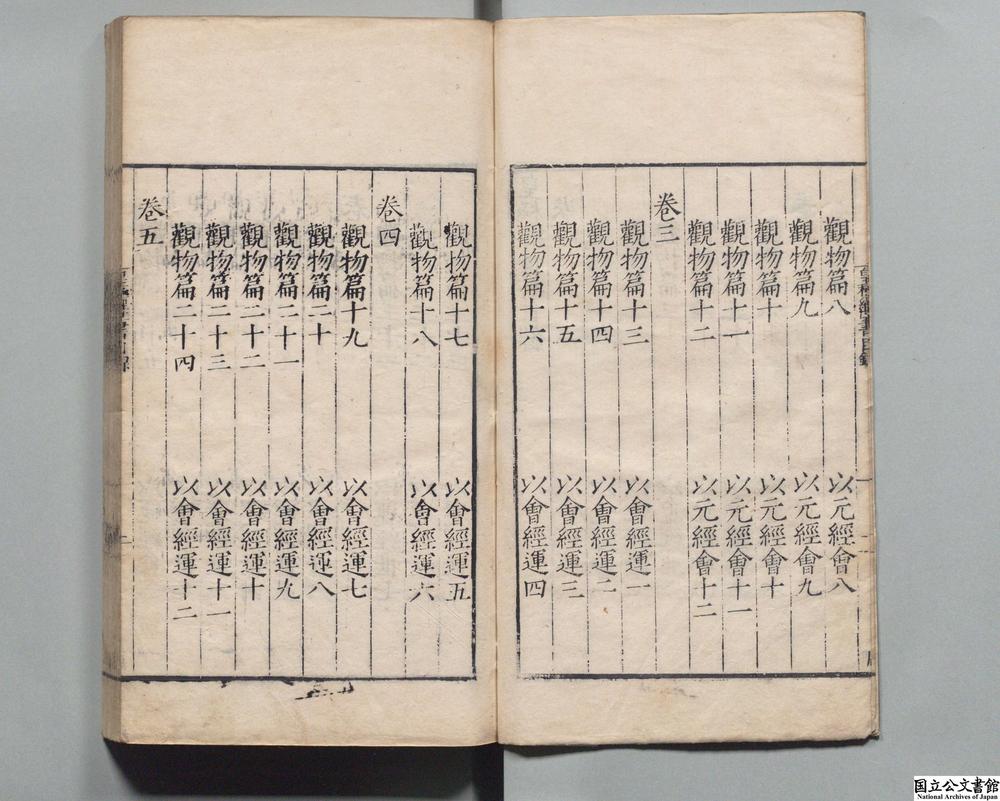 觀物篇八　以元經會八
觀物篇九　以元經會九
觀物篇十　以元經會十
觀物篇十一　以元經會十一
觀物篇十二　以元經會十二
卷三
觀物篇十三　以會經運一
觀物篇十四　以會經運二
觀物篇十五　以會經運三
觀物篇十六　以會經運四
觀物篇十七　以會經運五
觀物篇十八　以會經運六
卷四
觀物篇十九　以會經運七
觀物篇二十　以會經運八
觀物篇二十一　以會經運九
觀物篇二十二　以會經運十
觀物篇二十三　以會經運十一
觀物篇二十四　以會經運十二
卷五
国立公文書館
National Archives of Japan